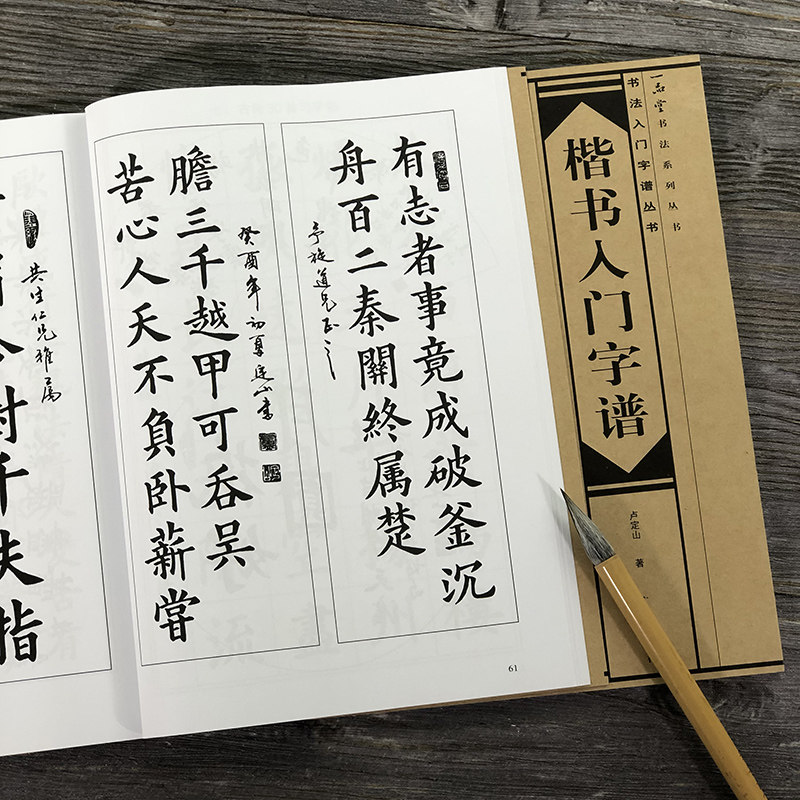 一品堂书法系列丛书
书法入门字谱丛书
楷书入门字谱
卢定山 著
有志者事竟成破釜沉
舟百二秦關終属楚
旋道兄正之
癸酉年初夏定山書
膽三千越甲可吞吴
苦心人天不負卧薪嘗
61
共生仁兄雅属
千夫指